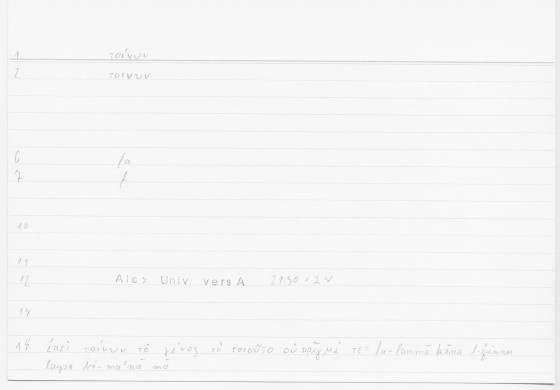 1 τοίνυν
2 τοινυν
6 fa
7 f
10
11
12 Alex Univ vers A 21.50
14
14 ἐπεὶ τοίνυν τὸ γένος τὸ τοιοῦτο οὐ πρᾶγμά τι: fa-lammā kāna l-ǧinsu
laysa bi-maʿnā mā